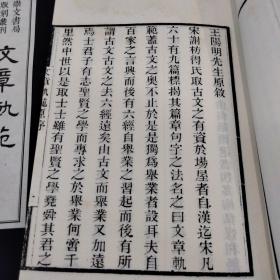 王陽明先生原敘
宋謝枋得氏取古文之有資於場屋者自漢迄宋凡
六十有九篇標揭其篇章句字之法名之曰文章軌
範蓋古文之奧不止於是是獨為舉業者設耳夫自
百家之言興而後有六經自舉業之習起而後有所
謂古文古文之去六經遠矣由古文而舉業又加遠
焉士君子有志聖賢之學而專求之於舉業何啻千
里然中世以是取士士雖有聖賢之學堯舜其君之
文章軌範
崇文書局